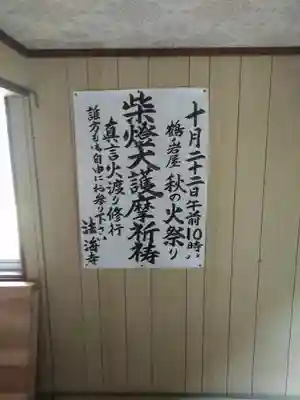 十月二十二日午前10時ヨリ
鶴ノ岩屋 秋の火祭り
柴燈大護摩祈祷
真言火渡り修行
誰方も御自由にお参り下さい。
法海寺